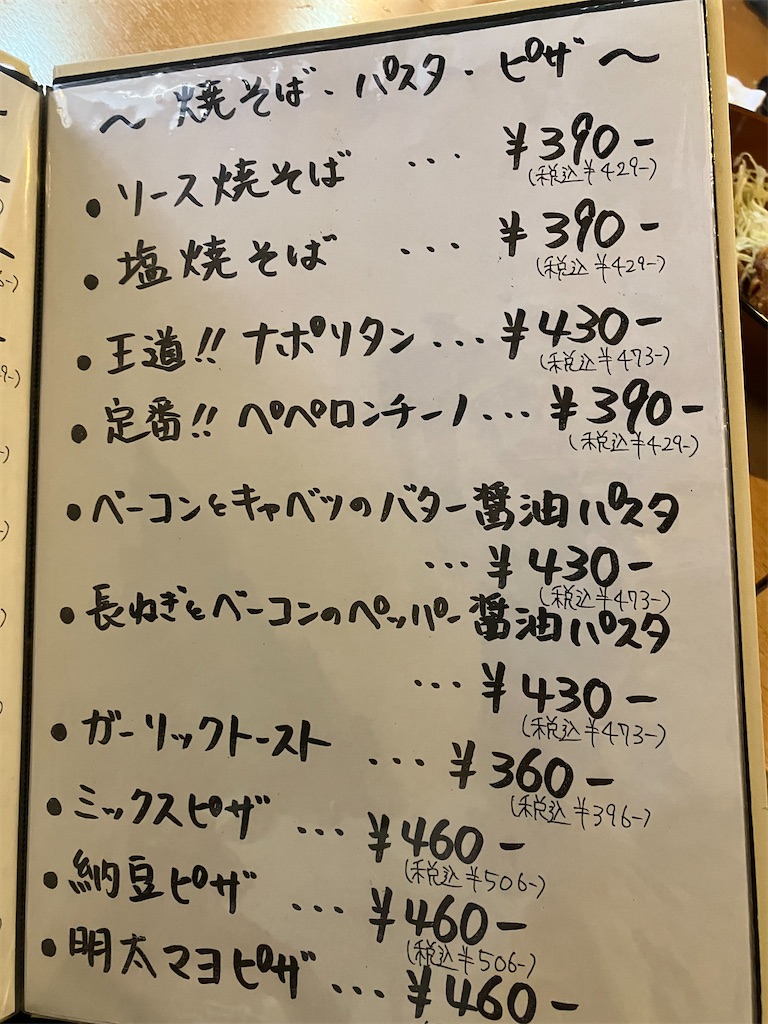 〜 焼そば・パスタ・ピザ 〜
・ソース焼そば ... ¥390-
(税込¥429-)
・塩焼そば ... ¥390-
(税込¥429-)
・王道!! ナポリタン... ¥430-
(税込¥473-)
・定番!! ペペロンチーノ... ¥390-
(税込¥429-)
・ベーコンとキャベツのバター醤油パスタ
... ¥430-
(税込¥473-)
・長ねぎとベーコンのペッパー醤油パスタ
... ¥430-
(税込¥473-)
・ガーリックトースト ... ¥360-
(税込¥396-)
・ミックスピザ ... ¥460-
(税込¥506-)
・納豆ピザ ... ¥460-
(税込¥506-)
・明太マヨピザ ... ¥460-